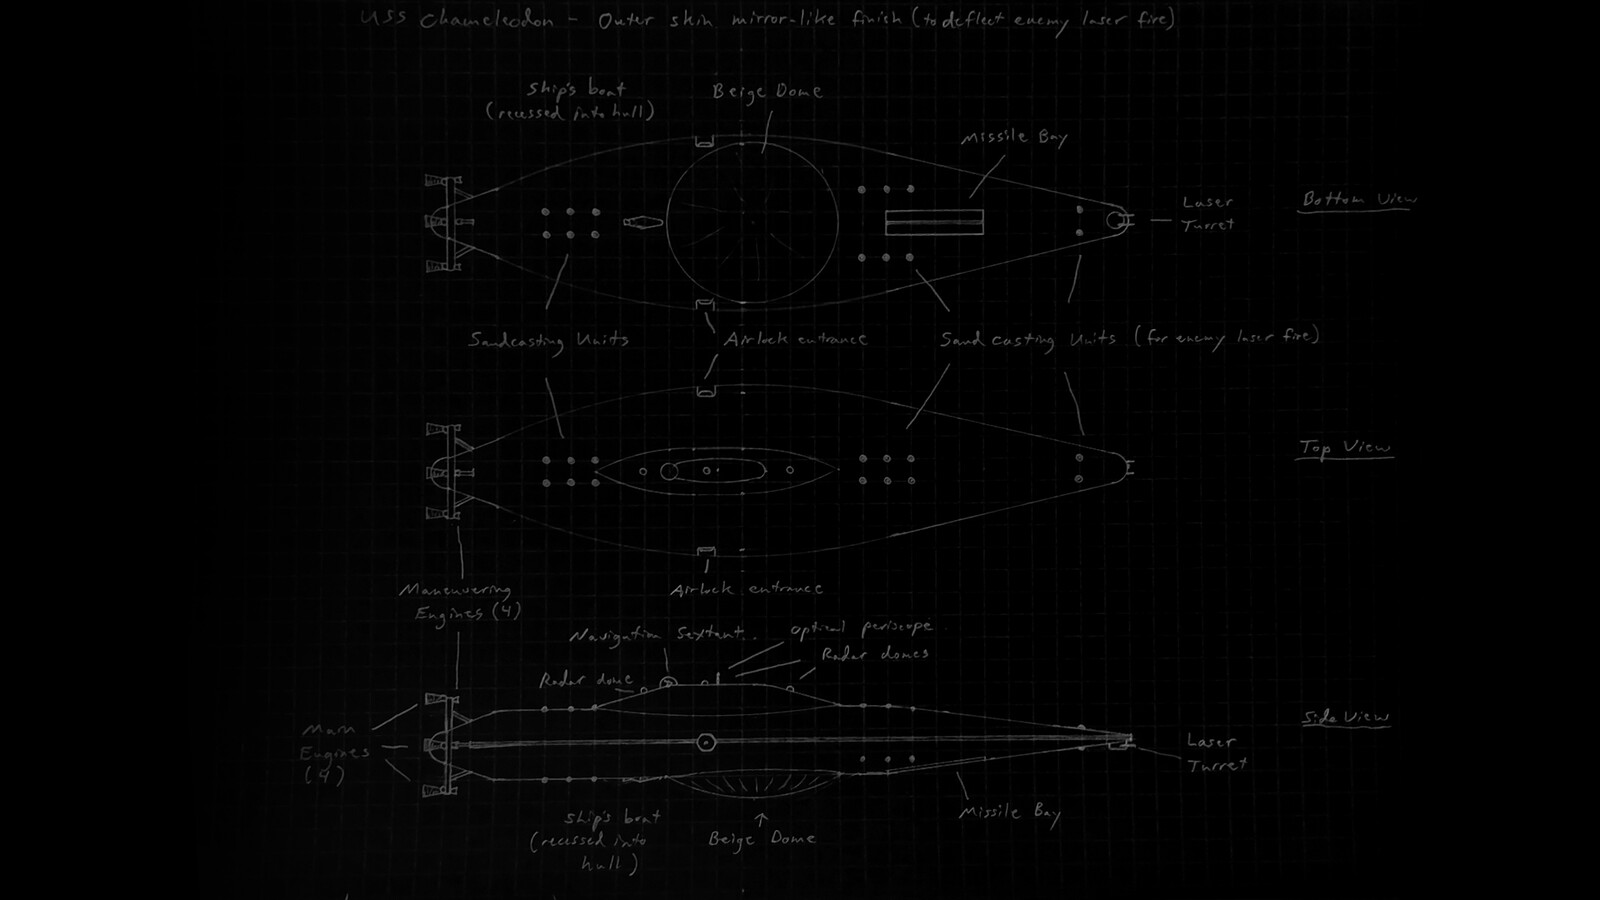 USS Chameleodon - Outer skin mirror-like finish (to deflect enemy laser fire)
Ship's boat
(recessed into hull)
Beige Dome
Missile Bay
Laser
Turret
Bottom View
Sandcasting Units
Airlock entrance
Sand casting Units (for enemy laser fire)
Top View
Maneuvering
Engines (4)
Airlock entrance
Navigation Sextant
Optical periscope
Radar domes
Radar dome
Main
Engines
(4)
Side View
Laser
Turret
Ship's boat
(recessed into
hull)
Beige Dome
Missile Bay